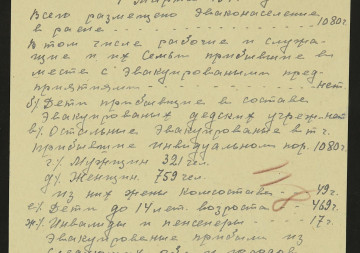 Всего размещено Эваконаселение
в раене - - - - - - 1080ч.
В том числе рабочие и служа-
щие и их семьи прибывшие в
место с Эвакуироваными пред-
приятиями - - - - - нет
б) Дети прибывшие в составе
Эвакуированых детских учрежд. нет
в) Остальные Эвакуированые в т.ч.
прибывшие инвидуальном пор. 1080г.
г) Мужщин 321 чел.
д) Женщин 759 чел.
из них жены комсостава - - 49г.
е) Дети до 14 лет. возроста - 469г.
ж) Инвалиды и пенсенеры - - 17г.
Эвакуированые прибыли из